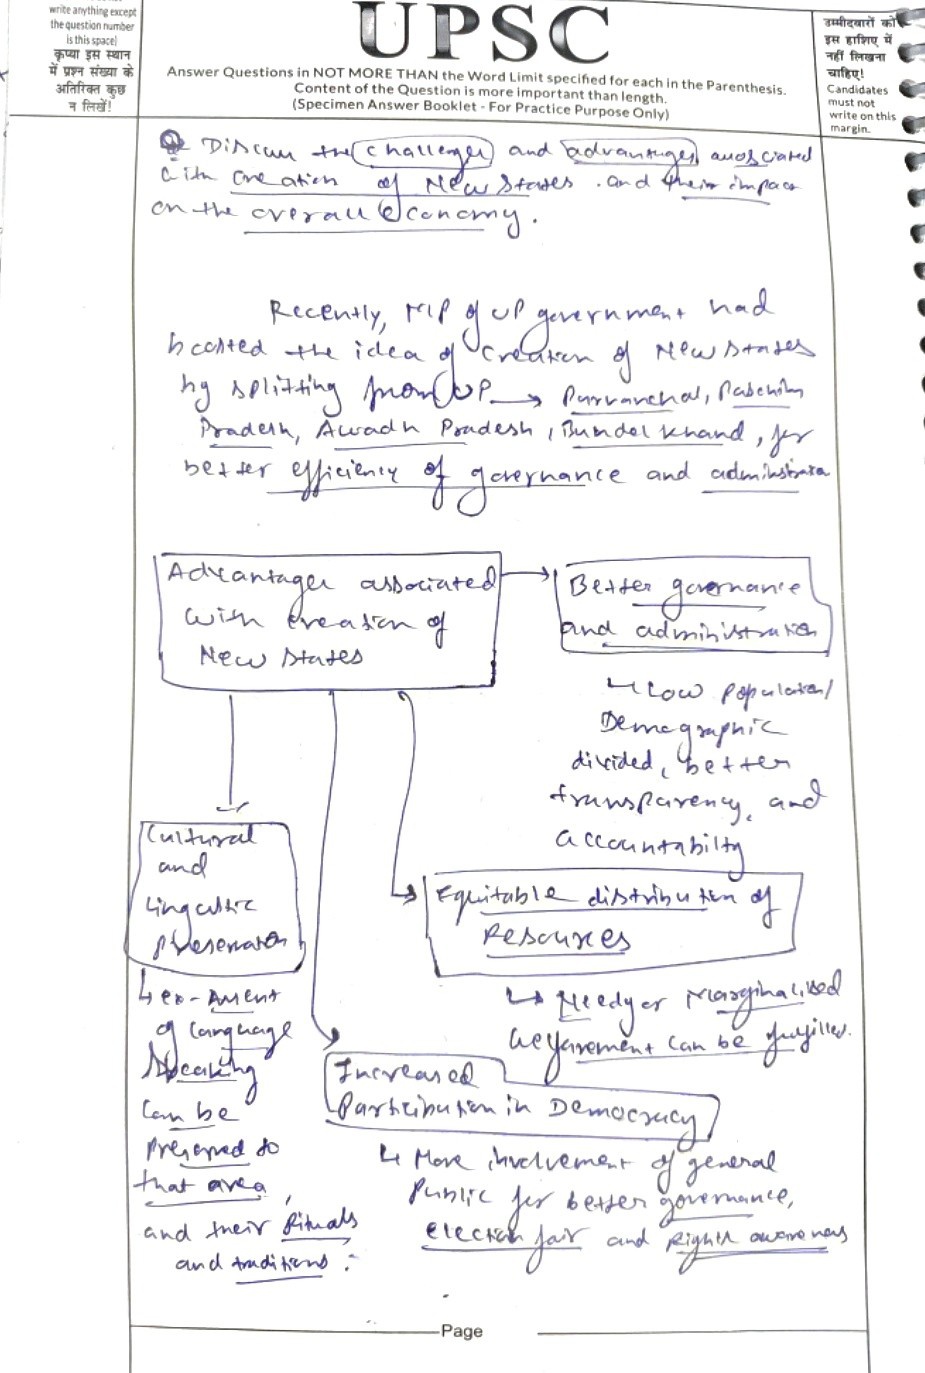 write anything except
the question number
is this space)
कृप्या इस स्थान
में प्रश्न संख्या के
अतिरिक्त कुछ
न लिखें!
UPSC
Answer Questions in NOT MORE THAN the Word Limit specified for each in the Parenthesis.
Content of the Question is more important than length.
(Specimen Answer Booklet - For Practice Purpose Only)
उम्मीदवारों को
इस हाशिए में
नहीं लिखना
चाहिए!
Candidates
must not
write on this
margin.
Discuss the challenges and advantages associated
with creation of New States. and their impact
on the overall economy.
Recently, MP of UP government had
boosted the idea of creation of New States
by splitting from UP → Purvanchal, Paschim
Pradesh, Awadh Pradesh, Bundelkhand, for
better efficiency of governance and
Advantages associated
with creation of
New States
Better governance
and administration
↳ Low population/
Demographic
divided, better
transparency, and
accountability
Cultural
and
↳ ex-
of language
speaking
can be
preserved to
that area,
and their Rituals
and traditions.
Equitable distribution of
Resources
↳ Needy or Marginalised
can be fulfilled.
Increased
in Democracy
↳ More involvement of general
Public for better governance,
election fair and Rights awareness
Page